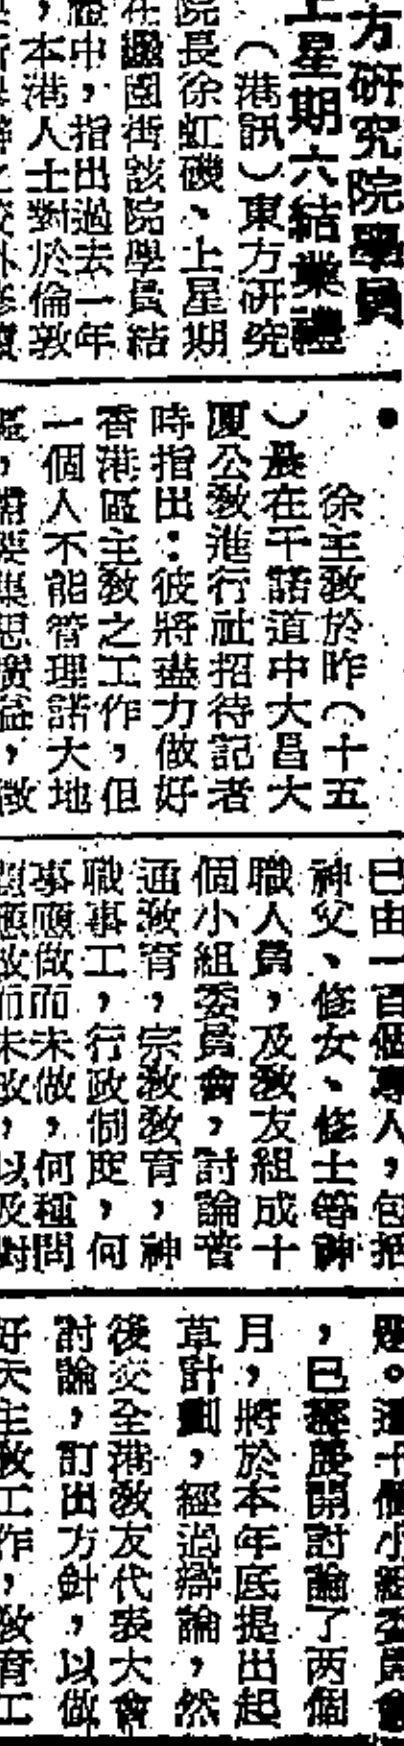 方研究院學員
上星期六結業禮
(港訊)東方研究
院長徐虹磯、上星期
在 園街該院學員結
中,指出過去一年
,本港人士對於倫敦
徐主教於昨(十五
)晨在干諾道中大昌大
厦公教進行社招待記者
時指出:彼將盡力做好
香港區主教之工作,但
一個人不能管理諾大地
區,需要集思廣益,徵
已由一百個專人,包括
神父、修女、修士等神
職人員,及教友組成十
個小組委員會,討論普
通教育,宗教教育,神
職事工,行政制度,何
事應做而未做,何種問
題應改而未改,以及對
題。這十個小組委員會
,已經展開討論了两個
月,將於本年底提出起
草計劃,經過辯論,然
後交全港教友代表大會
討論,訂出方針,以做
好天主教工作,教育工